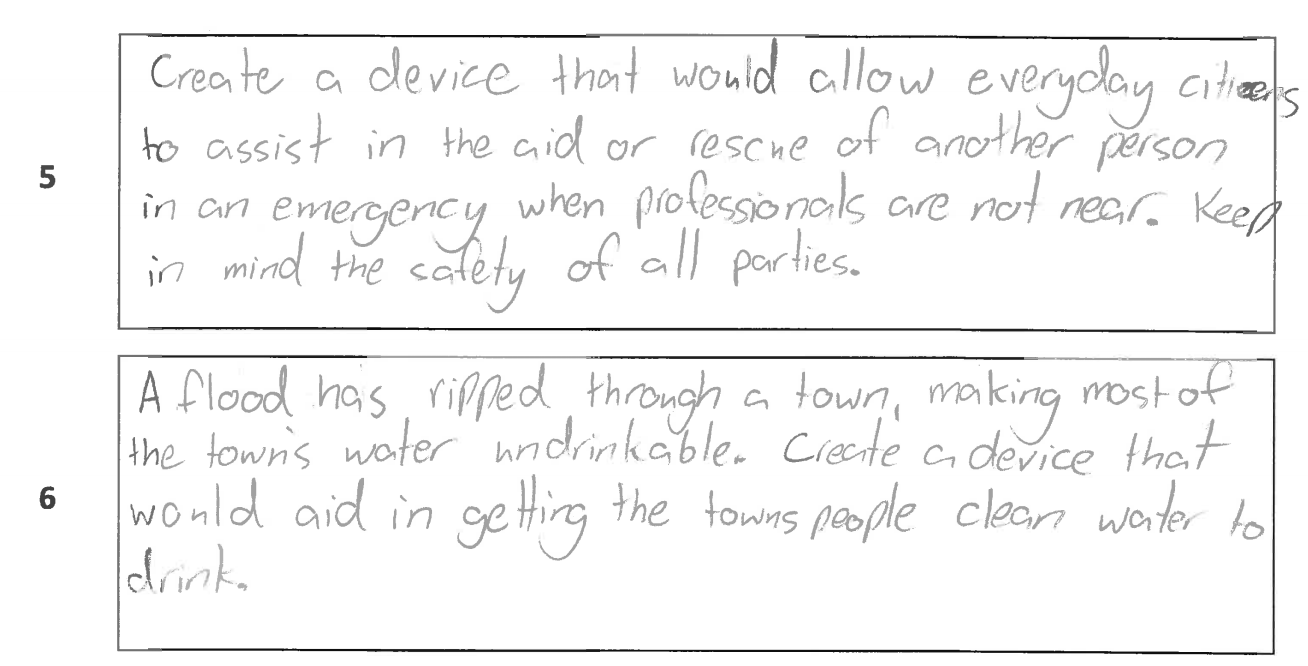 Create a device that would allow everyday citizens
to assist in the aid or rescue of another person
5
in an emergency when professionals are not near. Keep
in mind the safety of all parties.
A flood has ripped through a town, making most of
the town's water undrinkable. Create a device that
6
would aid in getting the towns people clean water to
drink.